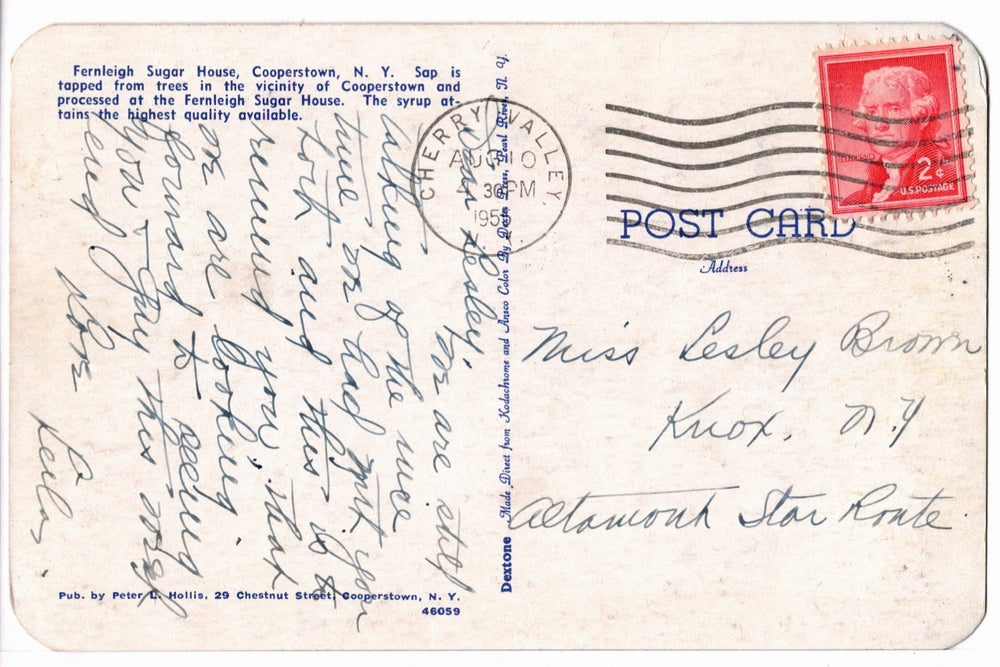 Fernleigh Sugar House, Cooperstown, N. Y. Sap is
tapped from trees in the vicinity of Cooperstown and
processed at the Fernleigh Sugar House. The syrup at-
tains the highest quality available.
Dear Lesley,
We are still
talking of the nice
time we had
and this is to
remind you that
we are looking
forward to seeing
you this
end
Love
Leila
Pub. by Peter L. Hollis, 29 Chestnut Street, Cooperstown, N. Y.
46059
Dextone Made Direct from Kodachrome and Ansco Color By Dexter Press, Pearl River, N. Y.
CHERRY VALLEY
AUG 10
4 30 PM
JEFFERSON
2¢
U.S. POSTAGE
POST CARD
Address
Miss Lesley Brown
Knox, N.Y
Altamont Star Route